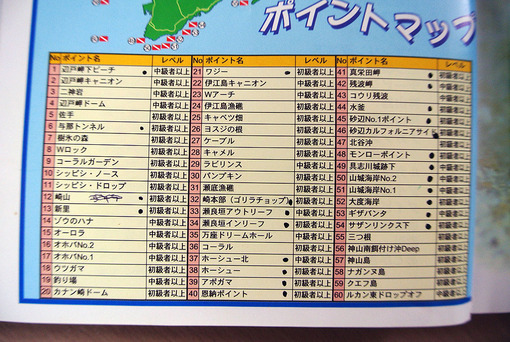 ポイントマップ
No ポイント名 レベル No ポイント名 レベル No ポイント名 レベル
1 辺戸岬下ビーチ 中級者以上 21 ワジー 初級者以上 41 真栄田岬 初級者以上
2 辺戸岬キャニオン 中級者以上 22 伊江島キャニオン 中級者以上 42 残波岬
3 二神岩 中級者以上 23 Wアーチ 中級者以上 43 コウリ残波
4 辺戸岬ドーム 中級者以上 24 伊江島漁礁 中級者以上 44 水釜
5 佐手 初級者以上 25 キャベツ畑 初級者以上 45 砂辺No.1ポイント
6 与那トンネル 初級者以上 26 ヨスジの根 初級者以上 46 砂辺カルフォルニアサイド
7 樹氷の森 初級者以上 27 ケーブル 初級者以上 47 北谷沖
8 Wロック 初級者以上 28 キャメル 初級者以上 48 モンローポイント
9 コーラルガーデン 初級者以上 29 ラビリンス 中級者以上 49 具志川城跡下
10 シッピシ・ノース 初級者以上 30 パンプキン 初級者以上 50 山城海岸No.2
11 シッピシ・ドロップ 初級者以上 31 瀬底漁礁 初級者以上 51 山城海岸No.1
12 崎山 初級者以上 32 崎本部（ゴリラチョップ） 初級者以上 52 大度海岸
13 新里 初級者以上 33 瀬良垣アウトリーフ 中級者以上 53 ギザバンタ
14 ゾウのハナ 中級者以上 34 瀬良垣インリーフ 初級者以上 54 サザンリンクス下
15 オーロラ 中級者以上 35 万座ドリームホール 中級者以上 55 三つ根
16 オホバNo.2 中級者以上 36 コーラル 初級者以上 56 神山南餌付け沖Deep 初級者以上
17 オホバNo.1 中級者以上 37 ホーシュー北 中級者以上 57 神山島 初級者以上
18 ウツガマ 初級者以上 38 ホーシュー 初級者以上 58 ナガンヌ島 初級者以上
19 釣り場 中級者以上 39 アポガマ 初級者以上 59 クエフ島 初級者以上
20 カナン崎ドーム 初級者以上 40 恩納ポイント 初級者以上 60 ルカン東ドロップオフ 中級者以上